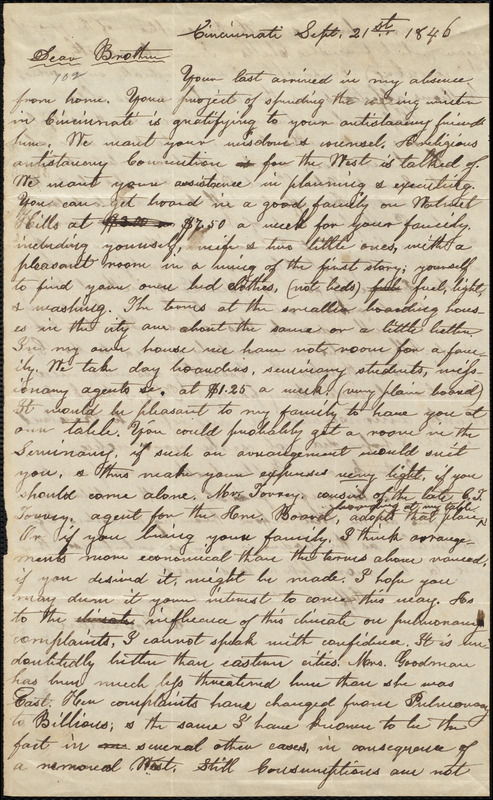 Cincinnati Sept. 21st 1846
Dear Brother
702
Your last arrived in my absence
from home. Your project of spending the coming winter
in Cincinnati is gratifying to your antislavery friends
here. We want your wisdom & counsel. A religious
antislavery Convention for the West is talked of.
We want your assistance in planning & executing.
You can get board in a good family on Walnut
Hills at $3.00 $7.50 a week for your family,
including yourself, wife & two little ones, with a
pleasant room in a wing of the first story; yourself
to find your own bed clothes, (not beds) fuel, lights
& washing. The terms at the smaller boarding hous-
es in the city are about the same or a little better.
In my own house we have not room for a fam-
ily. We take day boarders, seminary students, miss-
ionary agents &c. at $1.25 a week. (very plain board)
It would be pleasant to my family to have you at
our table. You could probably get a room in the
Seminary, if such an arrangement would suit
you, & thus make your expenses very light, if you
should come alone. Mr. Torrey, cousin of the late C. T.
Torrey, agent for the Ame. Board, adopts that plan,
boarding at my table
Or if you bring your family, I think arrange-
ments more economical than the terms above named,
if you desired it, might be made. I hope you
may deem it your interest to come this way. As
to the climate influence of this climate on pulmonary
complaints, I cannot speak with confidence. It is un-
doubtedly better than eastern cities. Mrs. Goodman
has been much less threatened here than she was
East. Her complaints have changed from Pulmonary
to Billious; & the same I have known to be the
fact in several other cases, in consequence of
a removal West. Still Consumptions are not